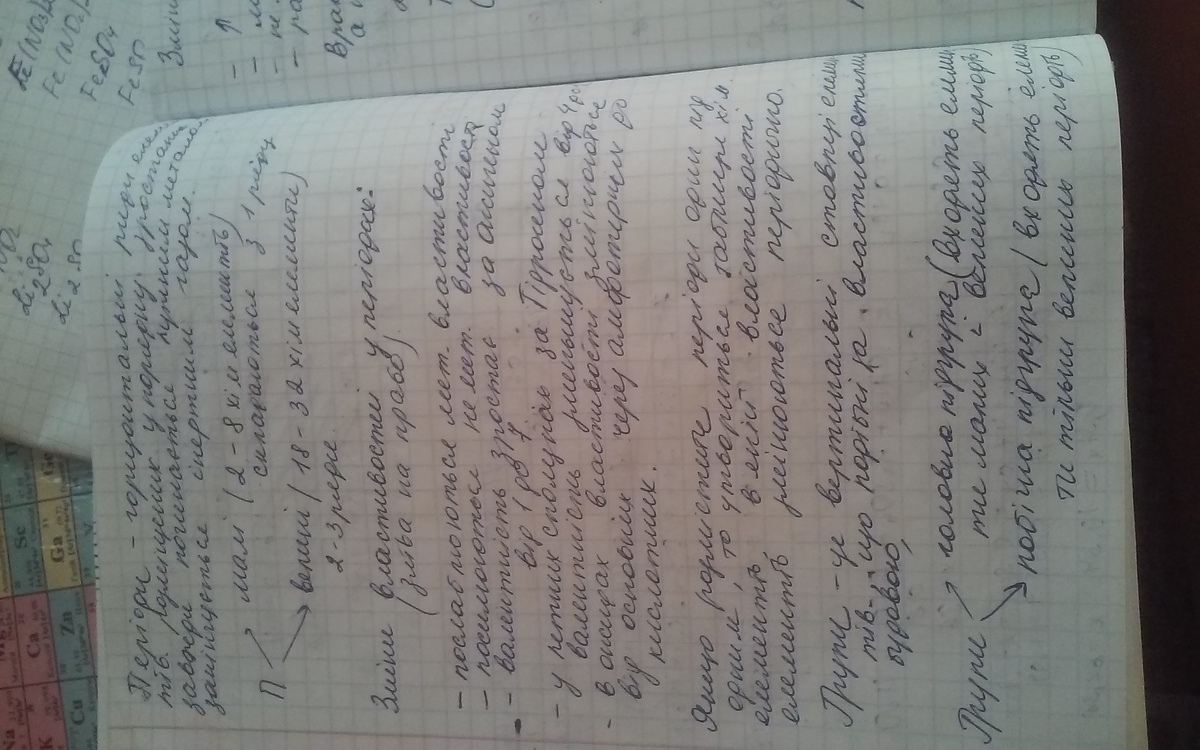 Періоди - горизонтальні ряди елемен
тів розміщених у порядку зростання
завжди починається лужним металом
закінчується інертним газом.
П малі (2-8 хім елементів)
складаються з 1 ряду
великі (18-32 хім елементи)
2-3 ряди
Зміни властивостей у періодах:
(зліва на право)
- послаблюються мет. властивості
- посилюються не мет. властивості
- валентність зростає за оксигеном
від 1 до 7
- у летких сполуках за Гідрогеном
валентність зменшується від 4 до
- в оксидах властивості змінюються
від основних через амфотерних до
кислотних.
Якщо розмістити періоди один під
одним, то утвориться таблиця хім
елементів в якій властивості
елементів змінюються періодично.
Групи - це вертикальні стовпці елемен
тів, що подібні за властивостями
будовою,
Групи головна підгрупа (входять елемен
ти малих і великих періодів)
побічна підгрупа (входять елемен
ти тільки великих періодів)
Fe(NO3)2
FeSO4
Li2SO4
Змін
Sc
Ga
Ge
V
Ca
Zn
Cu
K
Na